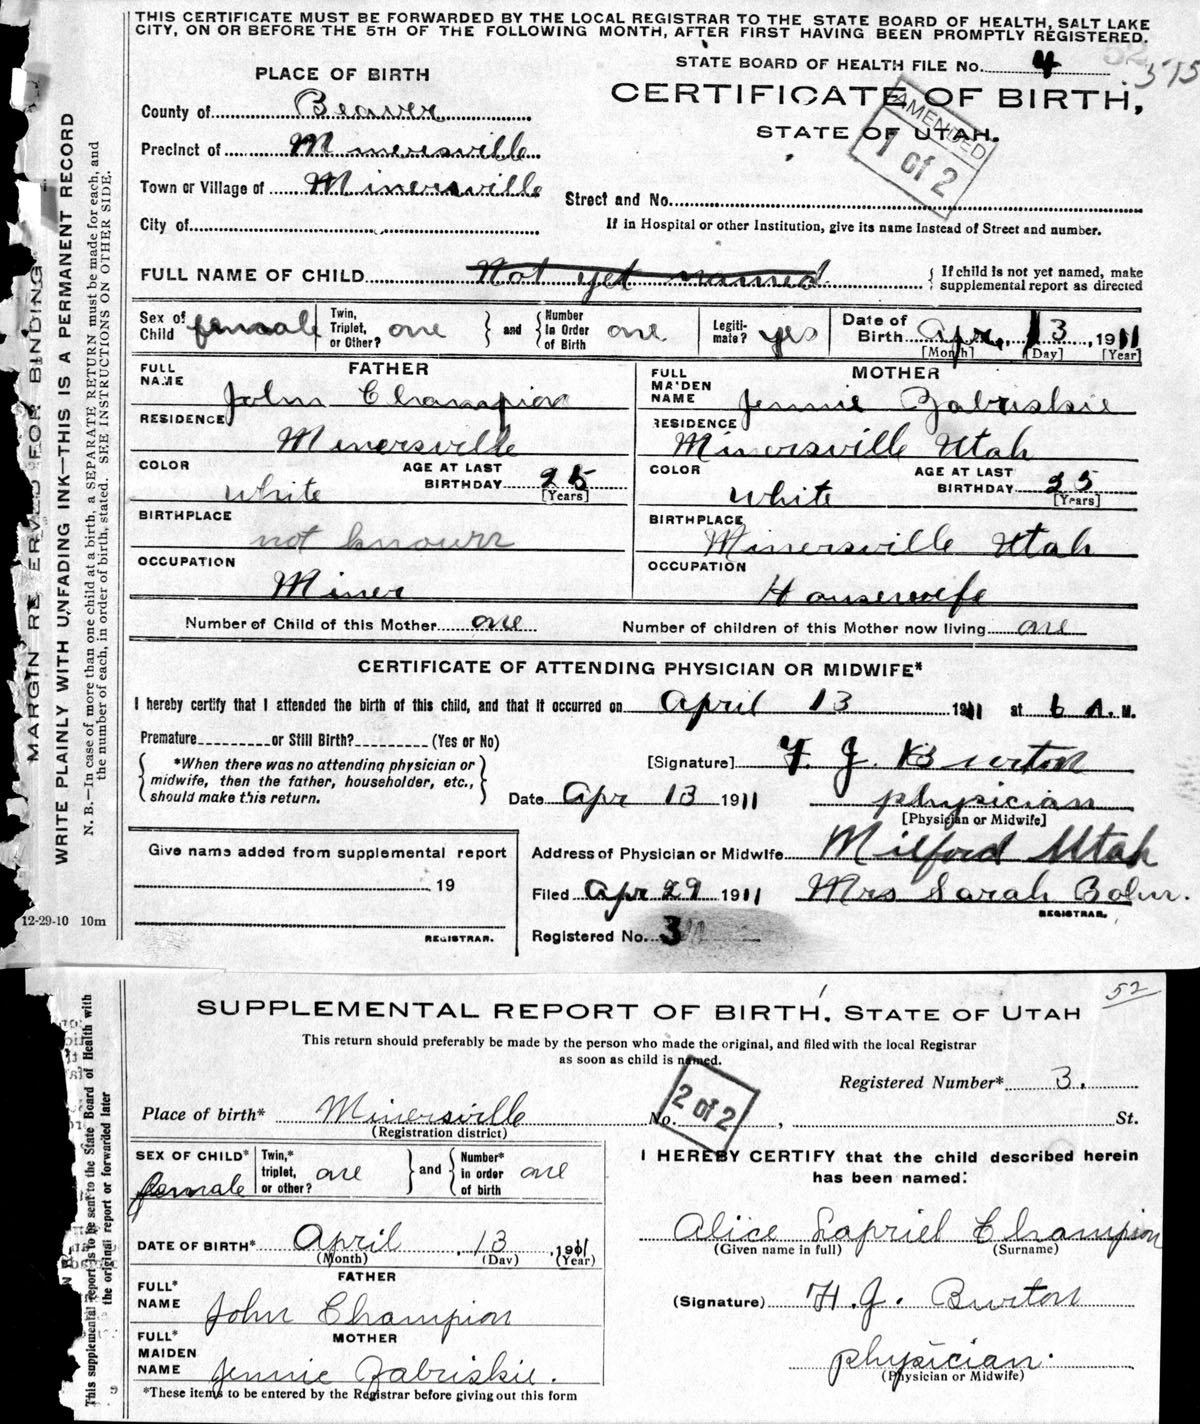 THIS CERTIFICATE MUST BE FORWARDED BY THE LOCAL REGISTRAR TO THE STATE BOARD OF HEALTH, SALT LAKE
CITY, ON OR BEFORE THE 5TH OF THE FOLLOWING MONTH, AFTER FIRST HAVING BEEN PROMPTLY REGISTERED.
STATE BOARD OF HEALTH FILE No. 4
52 515
PLACE OF BIRTH
CERTIFICATE OF BIRTH,
STATE OF UTAH.
AMENDED
1 of 2
County of Beaver
Precinct of Minersville
Town or Village of Minersville
Street and No.
City of
If in Hospital or other Institution, give its name Instead of Street and number.
FULL NAME OF CHILD Not yet named { If child is not yet named, make supplemental report as directed
Sex of Child female Twin, Triplet, or Other? one } and { Number In Order of Birth one Legiti-mate? yes Date of Birth Apr. 13, 1911
[Month] [Day] [Year]
FATHER
FULL NAME John Champion
RESIDENCE Minersville
COLOR white AGE AT LAST BIRTHDAY 25 [Years]
BIRTHPLACE not known
OCCUPATION Miner
MOTHER
FULL MAIDEN NAME Jennie Zabriskie
RESIDENCE Minersville Utah
COLOR white AGE AT LAST BIRTHDAY 25 [Years]
BIRTHPLACE Minersville Utah
OCCUPATION Housewife
Number of Child of this Mother one Number of children of this Mother now living one
CERTIFICATE OF ATTENDING PHYSICIAN OR MIDWIFE*
I hereby certify that I attended the birth of this child, and that it occurred on April 13 1911 at 6 A. M.
Premature or Still Birth? (Yes or No)
{ *When there was no attending physician or midwife, then the father, householder, etc., should make this return. }
[Signature] F. J. Burton
Date Apr 13 1911 physician
[Physician or Midwife]
Give name added from supplemental report
19
REGISTRAR.
Address of Physician or Midwife Milford Utah
Filed Apr 29 1911 Mrs Sarah Bohn.
REGISTRAR.
Registered No. 3
MARGIN RESERVED FOR BINDING
WRITE PLAINLY WITH UNFADING INK—THIS IS A PERMANENT RECORD
N. B.—In case of more than one child at a birth, a SEPARATE RETURN must be made for each, and
the number of each, in order of birth, stated. SEE INSTRUCTIONS ON OTHER SIDE.
12-29-10 10m
52
SUPPLEMENTAL REPORT OF BIRTH, STATE OF UTAH
This return should preferably be made by the person who made the original, and filed with the local Registrar
as soon as child is named.
Registered Number* 3.
2 of 2
Place of birth* Minersville No. , St.
(Registration district)
SEX OF CHILD* female Twin,* triplet, or other? one } and { Number* in order of birth one
DATE OF BIRTH* April, 13, 1911
(Month) (Day) (Year)
FATHER
FULL* NAME John Champion
MOTHER
FULL* MAIDEN NAME Jennie Zabriskie.
*These items to be entered by the Registrar before giving out this form
I HEREBY CERTIFY that the child described herein
has been named:
Alice Lapriel Champion
(Given name in full) (Surname)
(Signature) H. J. Burton
physician.
(Physician or Midwife)
This supplemental report is to be sent to the State Board of Health with
the original report or forwarded later